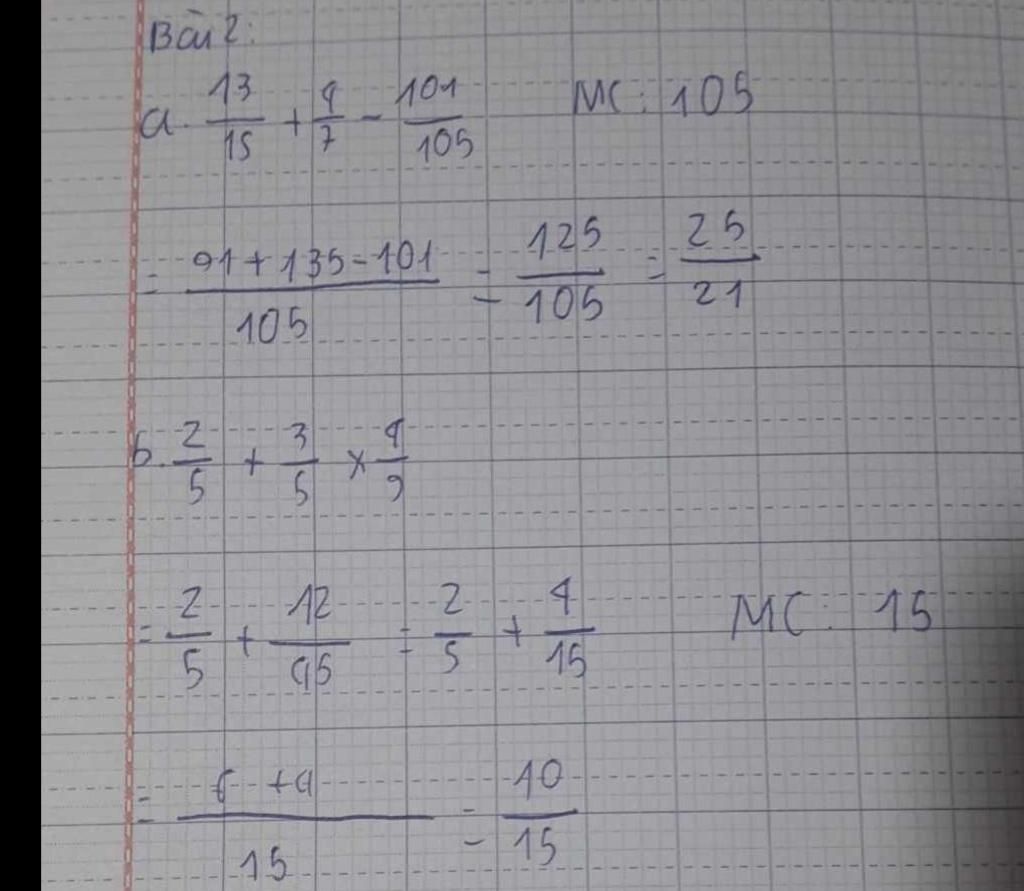 Bài 2:
a. 13/15 + 9/7 - 101/105 MC: 105
= (91 + 135 - 101)/105 = 125/105 = 25/21
b. 2/5 + 3/5 × 4/9
= 2/5 + 12/45 = 2/5 + 4/15 MC: 15
= (6 + 4)/15 = 10/15